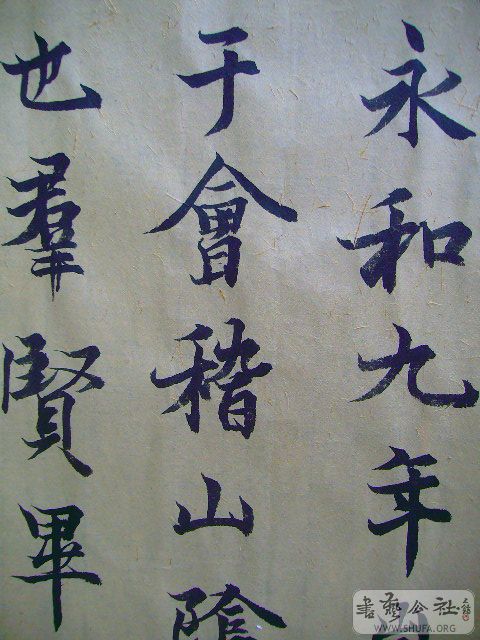 永和九年
于會稽山陰
也羣賢畢
書藝公社
WWW.SHUFA.ORG